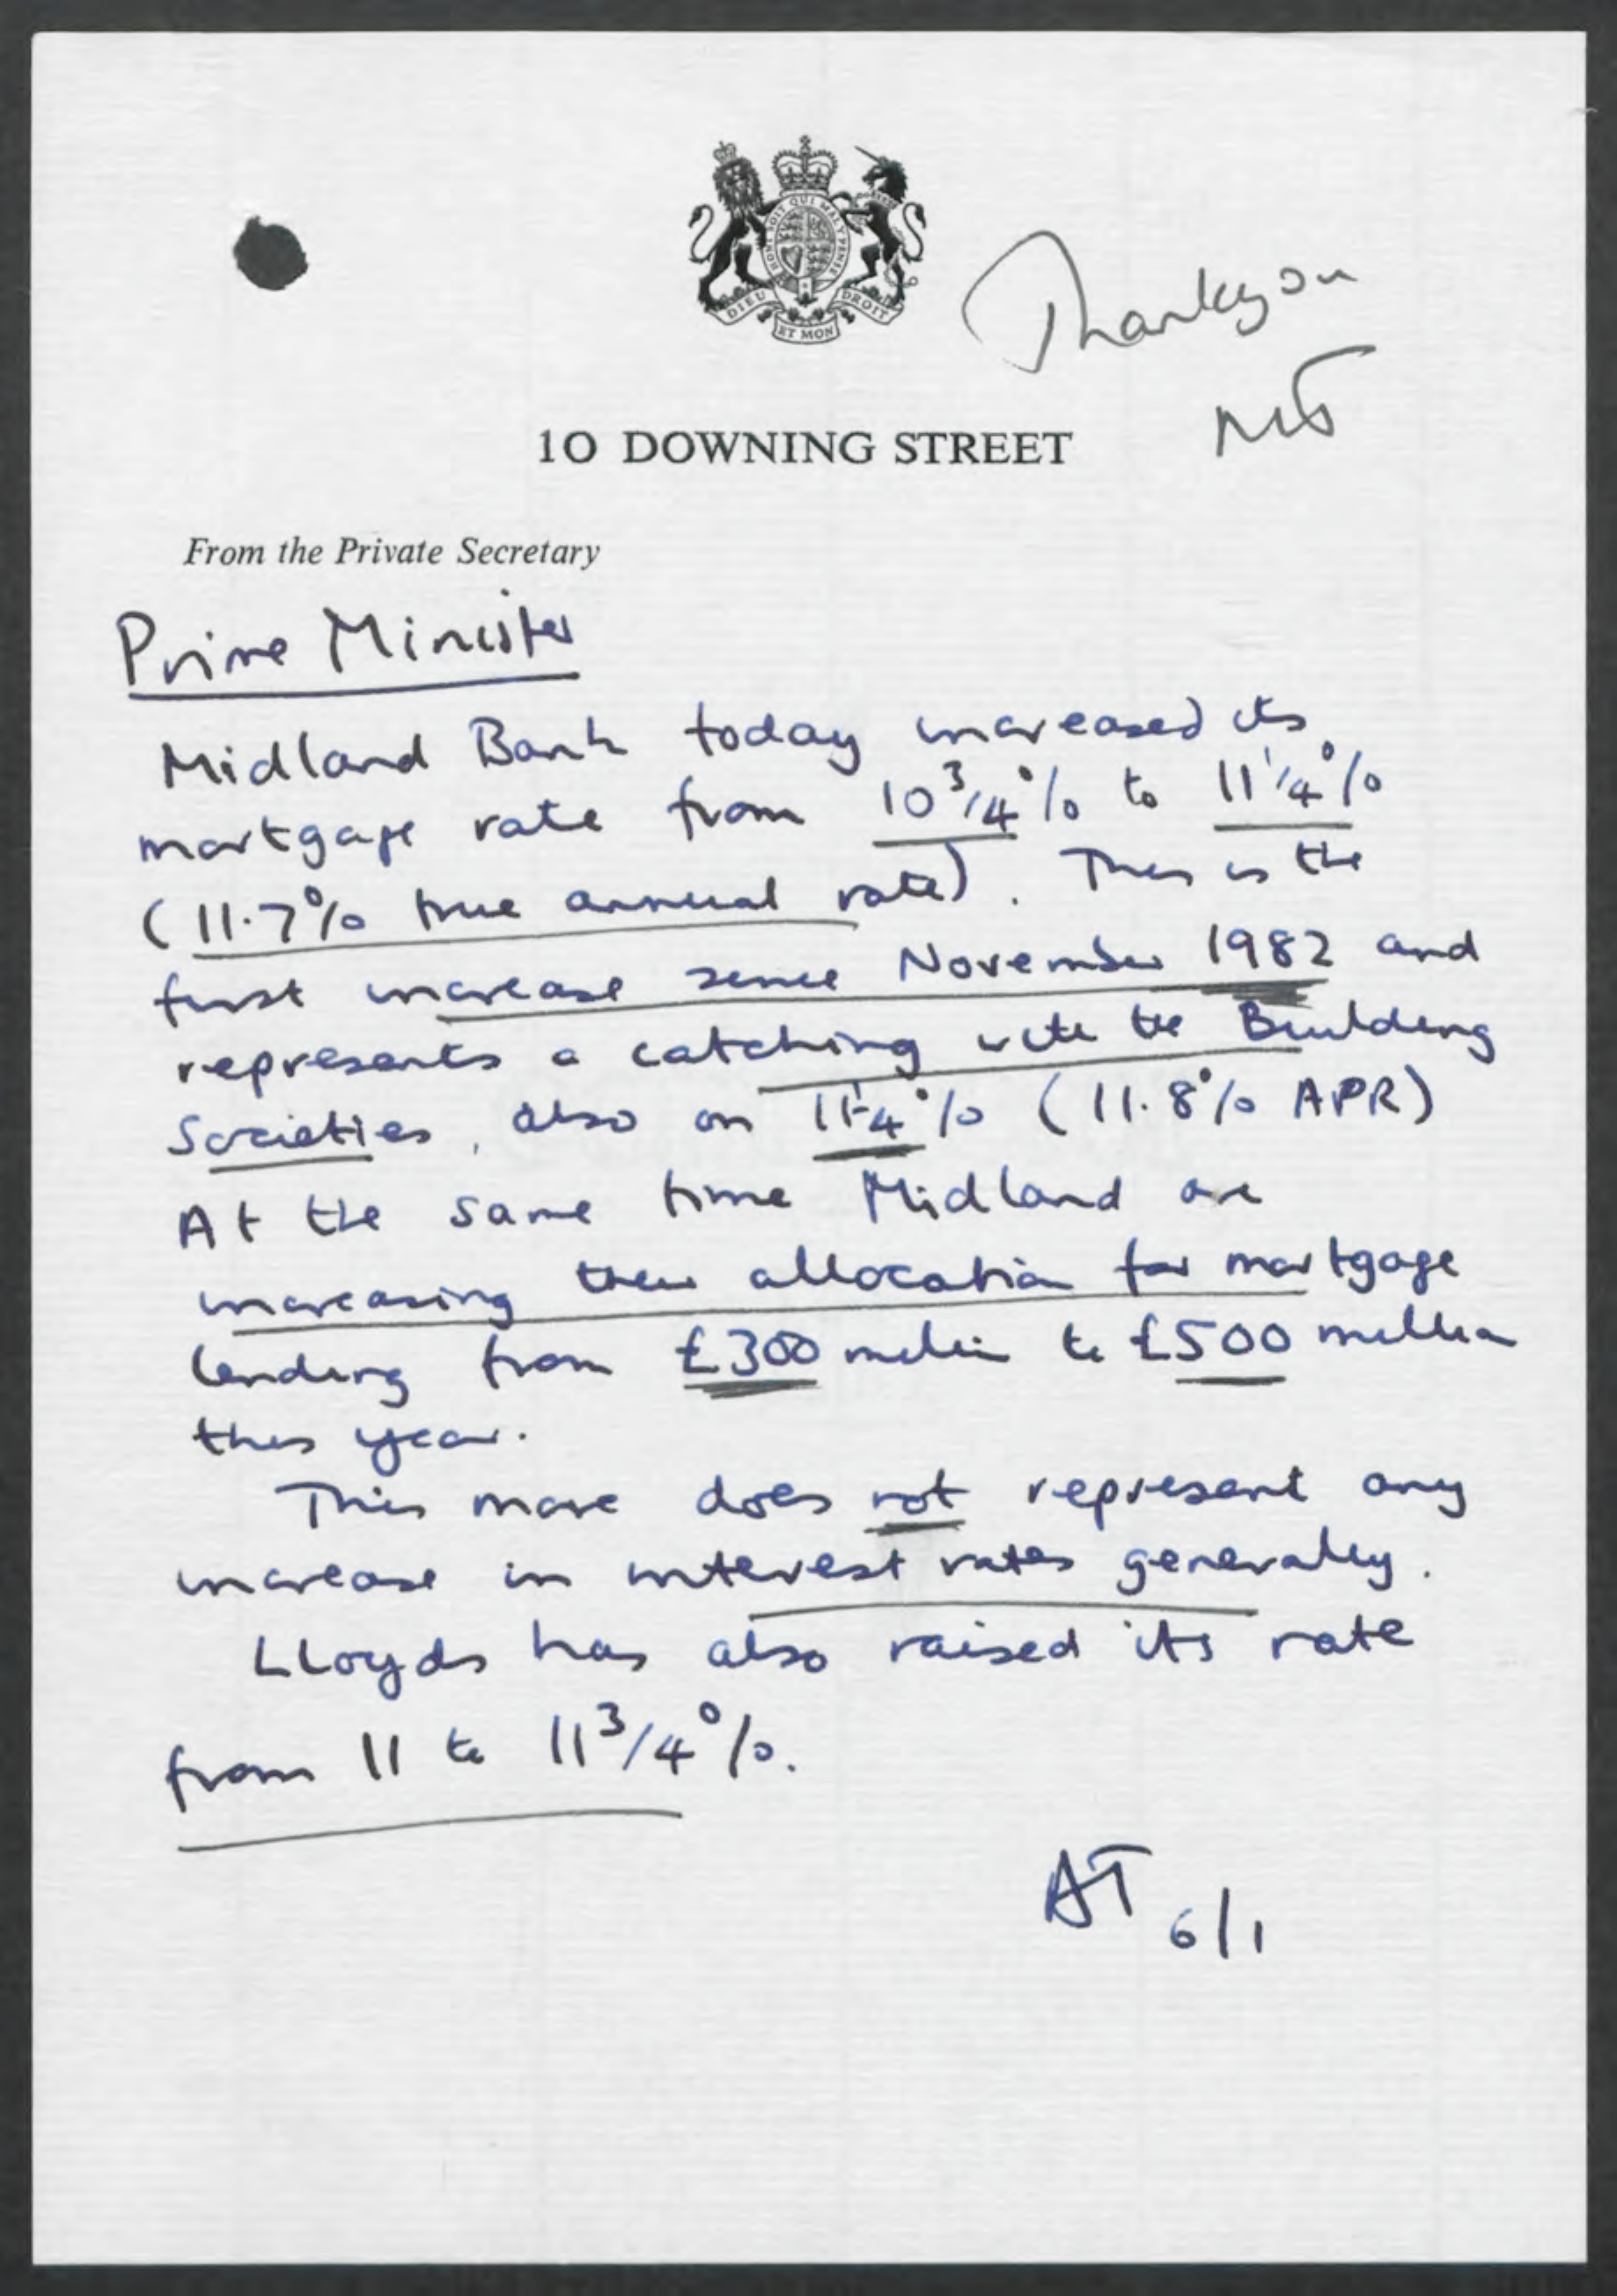 HONI SOIT QUI MAL Y PENSE
DIEU ET MON DROIT
Thankyou
MT
10 DOWNING STREET
From the Private Secretary
Prime Minister
Midland Bank today increased its
mortgage rate from 10 3/4 % to 11 1/4 %
(11.7% true annual rate). This is the
first increase since November 1982 and
represents a catching with the Building
Societies, also on 11 1/4 % (11.8% APR)
At the same time Midland are
increasing their allocation for mortgage
lending from £300 million to £500 million
this year.
This move does not represent any
increase in interest rates generally.
Lloyds has also raised its rate
from 11 to 11 3/4 %.
AT 6/1